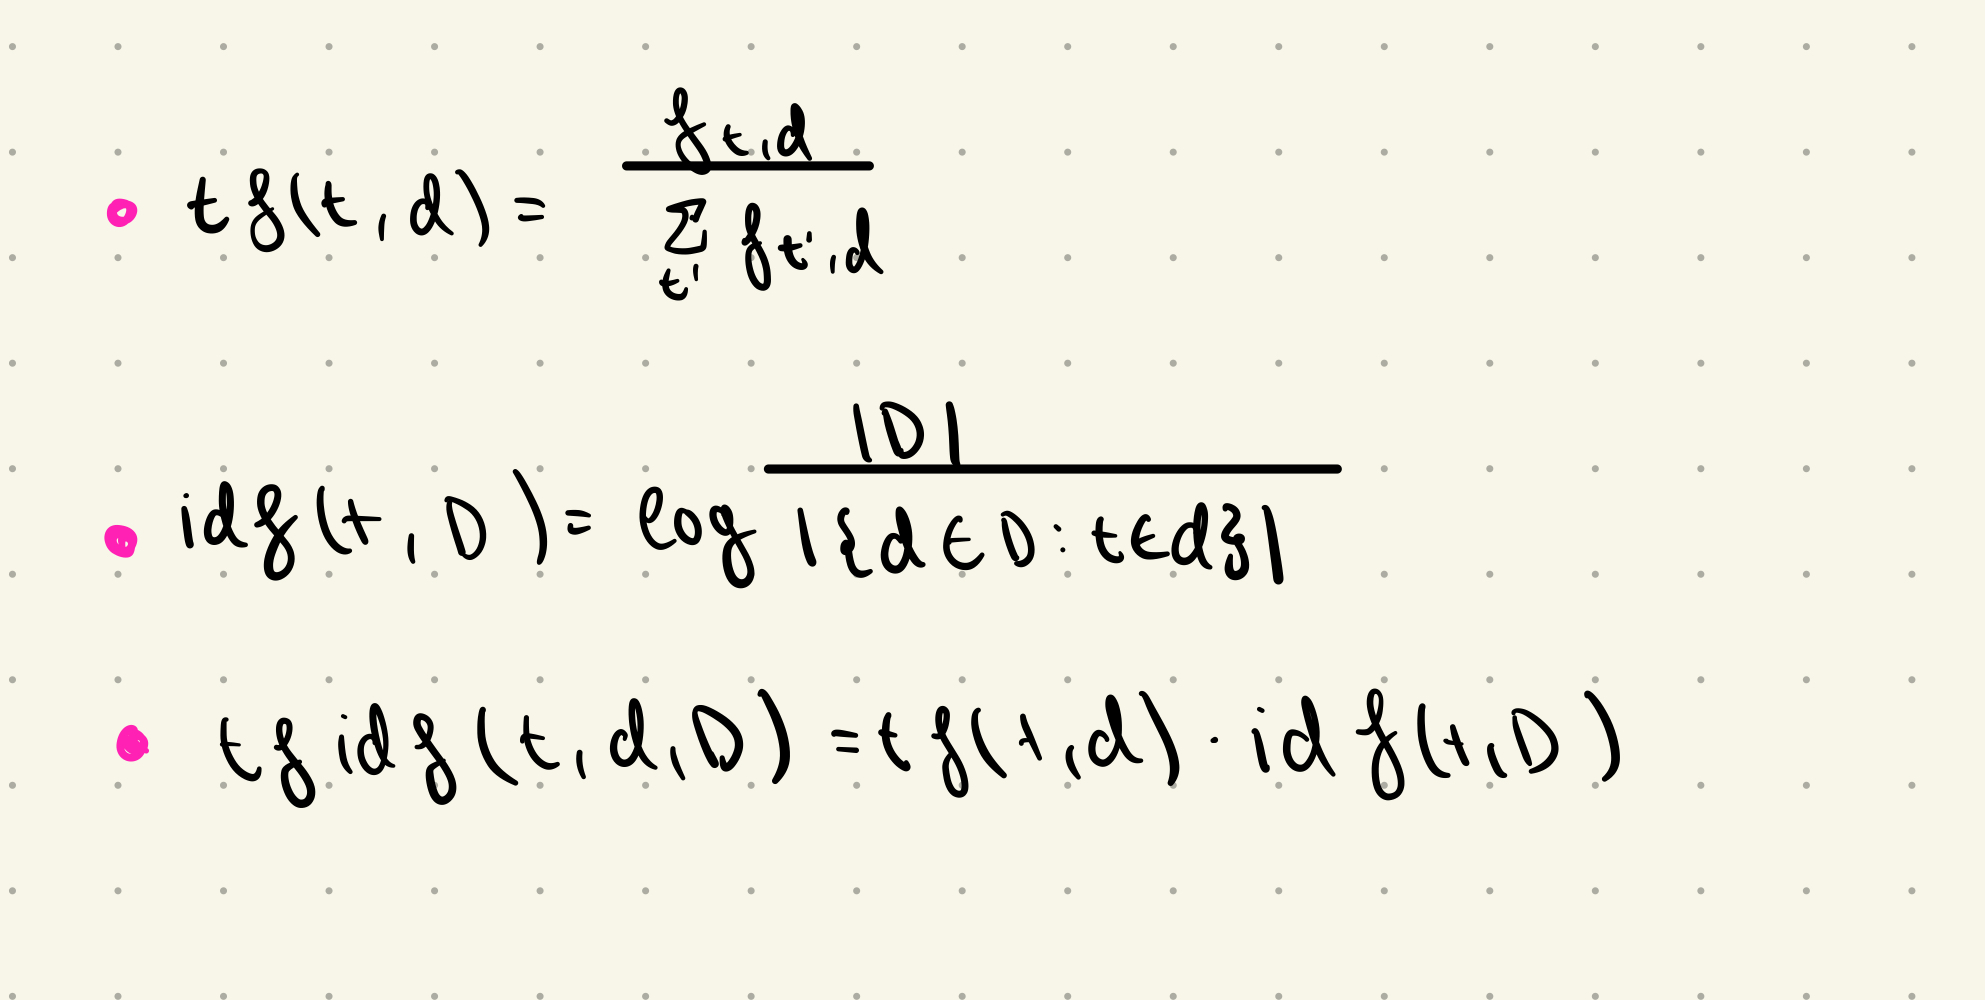 • tf(t,d) = f_{t,d} / Σ_{t'} f_{t',d}
• idf(t,D) = log |D| / |{d∈D : t∈d}|
• tfidf(t,d,D) = tf(t,d) · idf(t,D)